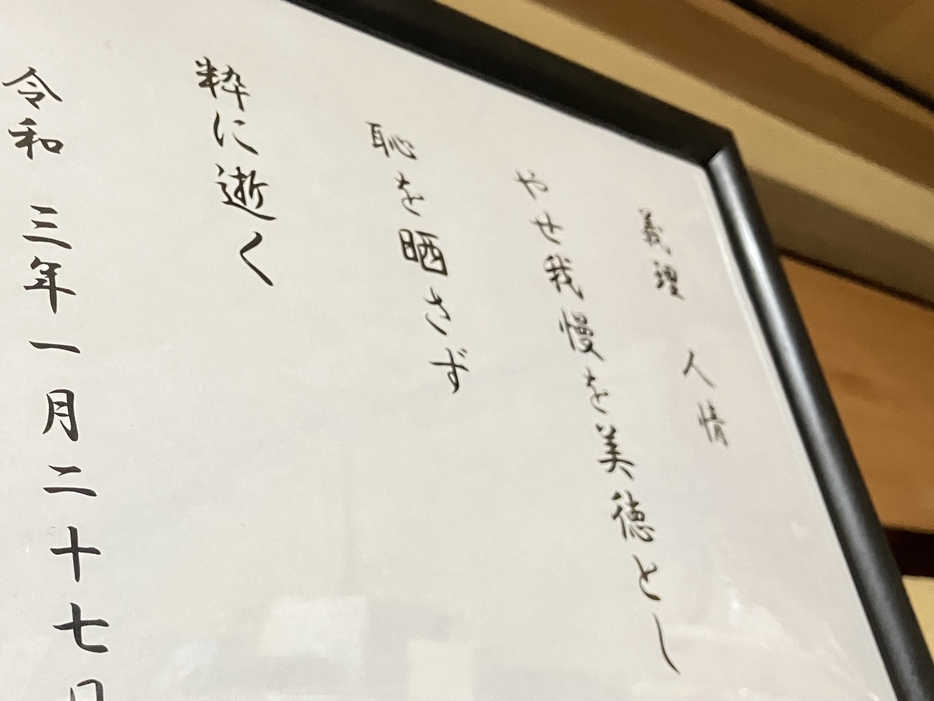 義理 人情
やせ我慢を美徳とし
恥を晒さず
粋に逝く
令和 三年一月二十七日